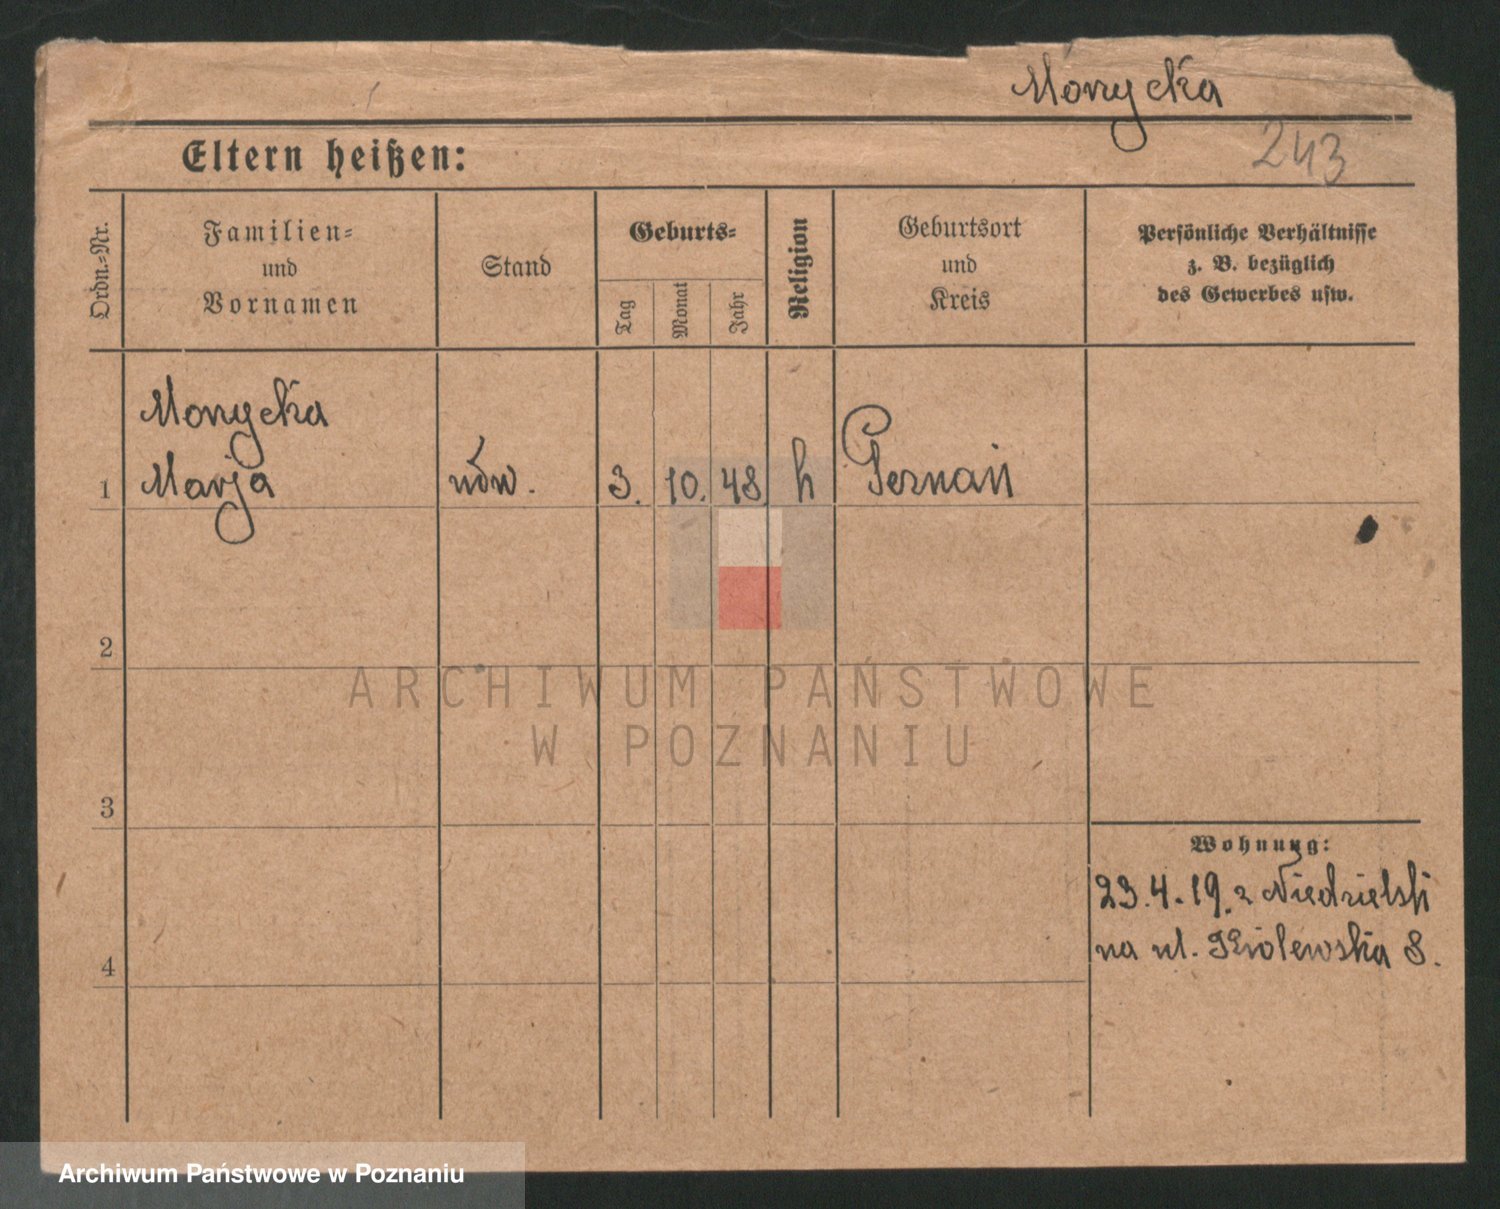 Morzycka
243
Eltern heißen:
Ordn.=Nr.
Familien=
und
Vornamen
Stand
Geburts=
Tag
Monat
Jahr
Religion
Geburtsort
und
Kreis
Persönliche Verhältnisse
z. B. bezüglich
des Gewerbes usw.
Morzycka
1 Marja wdw. 3. 10. 48. k Poznań
2
ARCHIWUM PAŃSTWOWE
W POZNANIU
3
Wohnung:
23.4.19. z Niedzielski
4 na ul. Królewska 8.
Archiwum Państwowe w Poznaniu